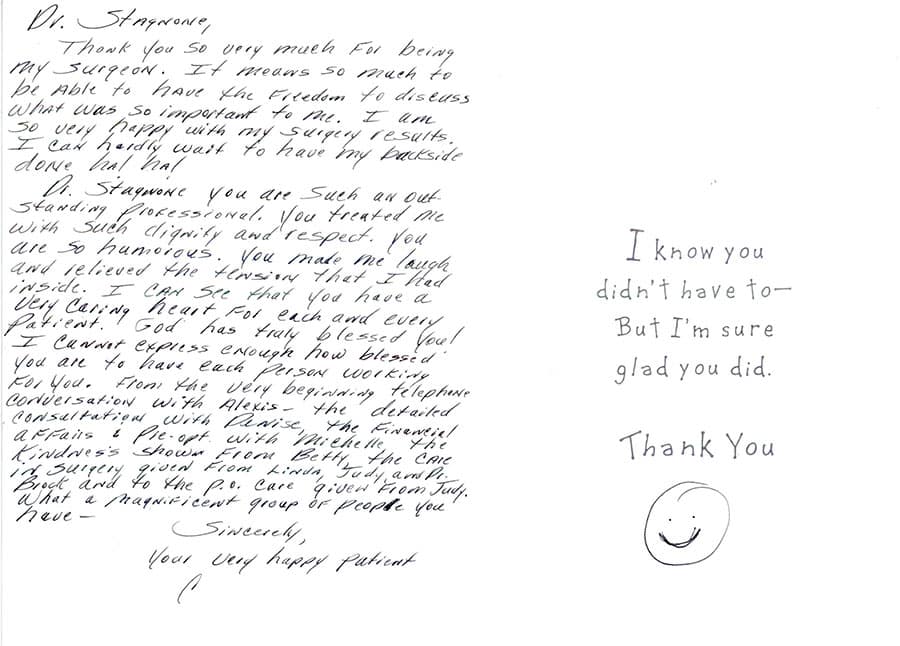 Dr. Stagnone,
Thank you so very much for being
my surgeon. It means so much to
be able to have the freedom to discuss
what was so important to me. I am
so very happy with my surgery results.
I can hardly wait to have my backside
done ha! ha!
Dr. Stagnone you are such an out-
standing professional. You treated me
with such dignity and respect. You
are so humorous. You made me laugh
and relieved the tension that I had
inside. I can see that you have a
very caring heart for each and every
patient. God has truly blessed you!
I cannot express enough how blessed
you are to have each person working
for you. From the very beginning telephone
conversation with Alexis – the detailed
consultation with Denise, the financial
affairs & pre-opt. with Michelle, the
kindness shown from Betty, the care
in surgery given from Linda, Judy, and Dr.
Brock and to the p.o. care given from Judy.
What a magnificent group of people you
have –
Sincerely,
Your very happy patient
I know you
didn't have to—
But I'm sure
glad you did.
Thank You